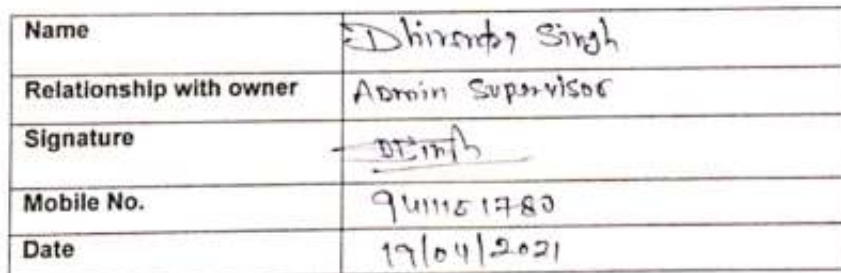 Name Dhirendra Singh
Relationship with owner Admin Supervisor
Signature
Mobile No. 9411151780
Date 19/04/2021